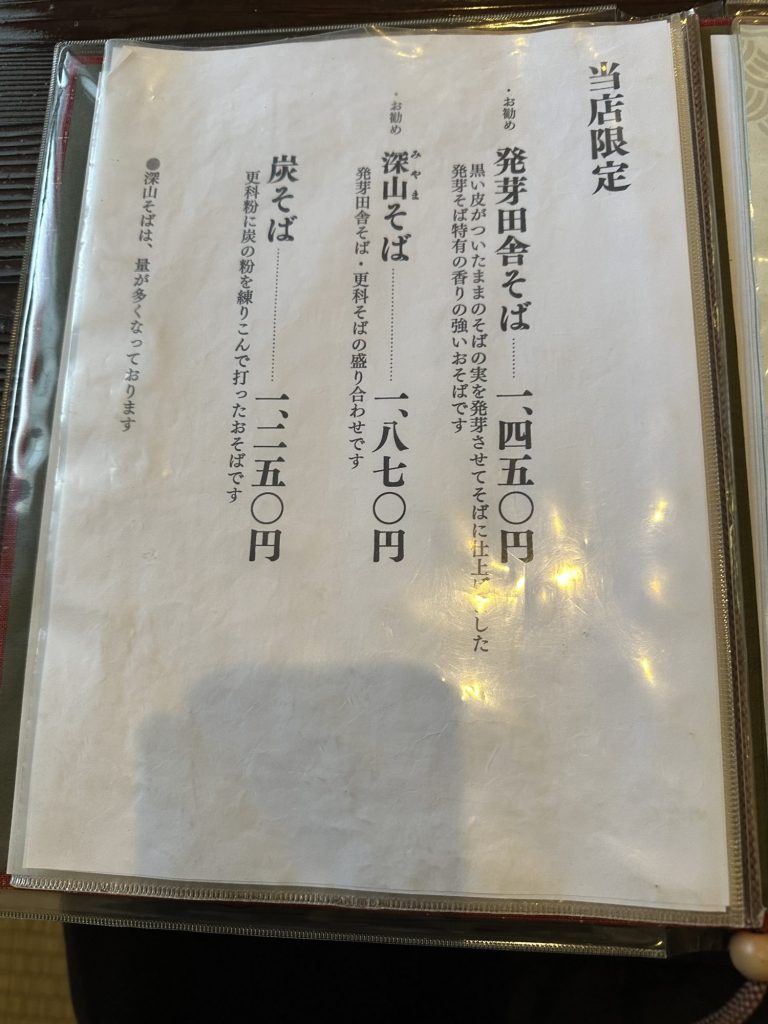 当店限定
・お勧め 発芽田舎そば………一、四五〇円
黒い皮がついたままのそばの実を発芽させてそばに仕上げました
発芽そば特有の香りの強いおそばです
・お勧め 深山そば………一、八七〇円
みやま
発芽田舎そば・更科そばの盛り合わせです
炭そば………一、二五〇円
更科粉に炭の粉を練りこんで打ったおそばです
●深山そばは、量が多くなっております